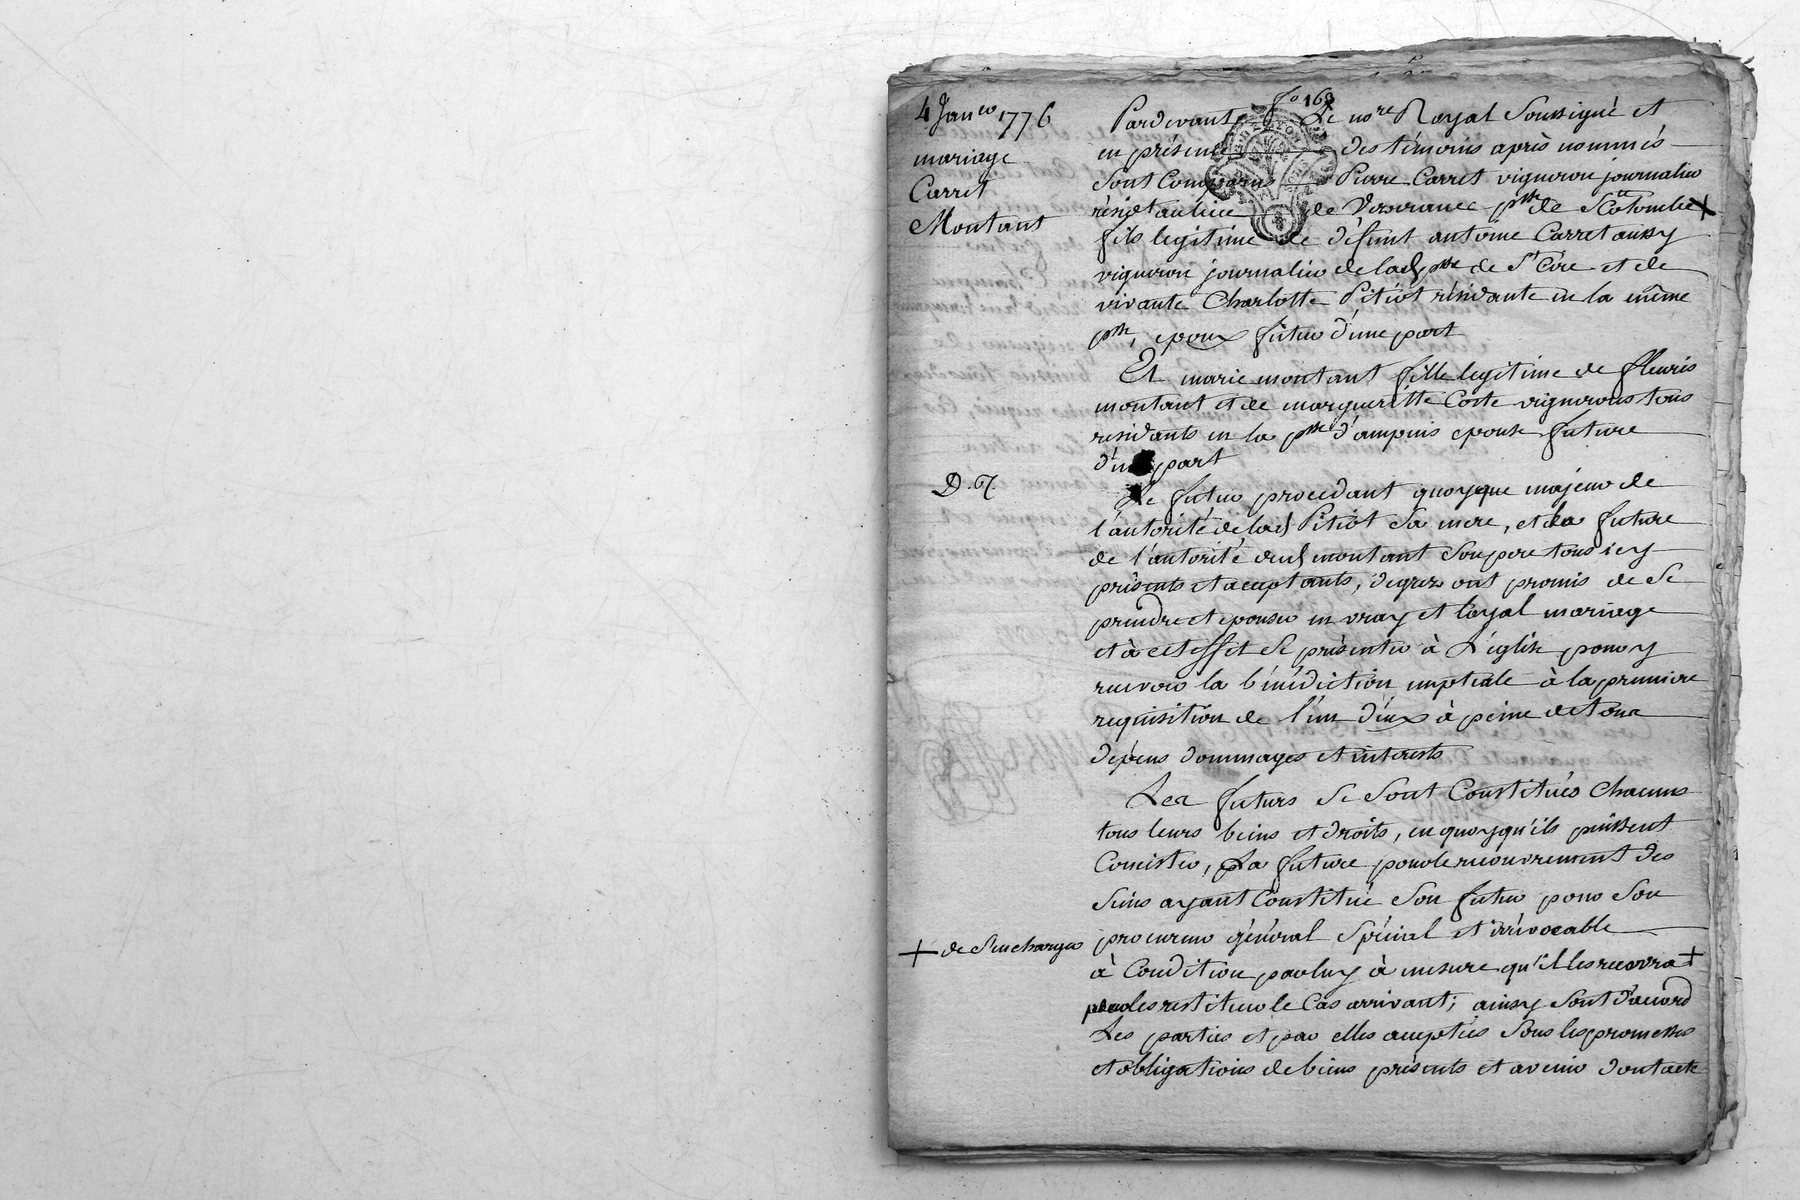 fo 163
4 Janer 1776
mariage
Carret
Montant
Pardevant Le nore Royal Soussigné et
en présence des témoins après nommés
Sont Comparus Pierre Carret vigneron journalier
résidt au lieu de Vezerance psse de Ste Colombe +
fils legitime de défunt antoine Carret aussy
vigneron journalier de lad psse de St Cire et de
vivante Charlotte Pitiot résidante en la même
psse, epoux futur d'une part
Et marie montant fille legitime de fleuris
montant et de margueritte Coste vignerons tous
residants en la psse d'ampuis epouse future
d'u part
D. 67.
Le futur procedant quoyque majeur de
l'autorité de lad Pitiot Sa mere, et la future
de l'autorité dud montant Son pere tous icy
présents et aceptants, degrez ont promis de Se
prendre et epouser en vray et loyal mariage
et à cet effet Se présenter à L'église pour y
recevoir la bénédiction nuptiale à la premiere
requisition de l'un d'eux à peine de tous
dépens dommages et interests
Les futurs Se Sont Constitués Chacuns
tous leurs biens et droits, en quoy qu'ils puissent
Concister, La future pour le recouvrement des
Siens ayant Constitué Son futur pour Son
procureur général Spécial et irrévocable
+ de S'en charger
à Condition par luy à mesure qu'il les recevra +
les restituer le Cas arrivant; ainsy Sont d'acord
Les parties et par elles acceptées Sous les promesses
et obligations de biens présents et avenir dont acte